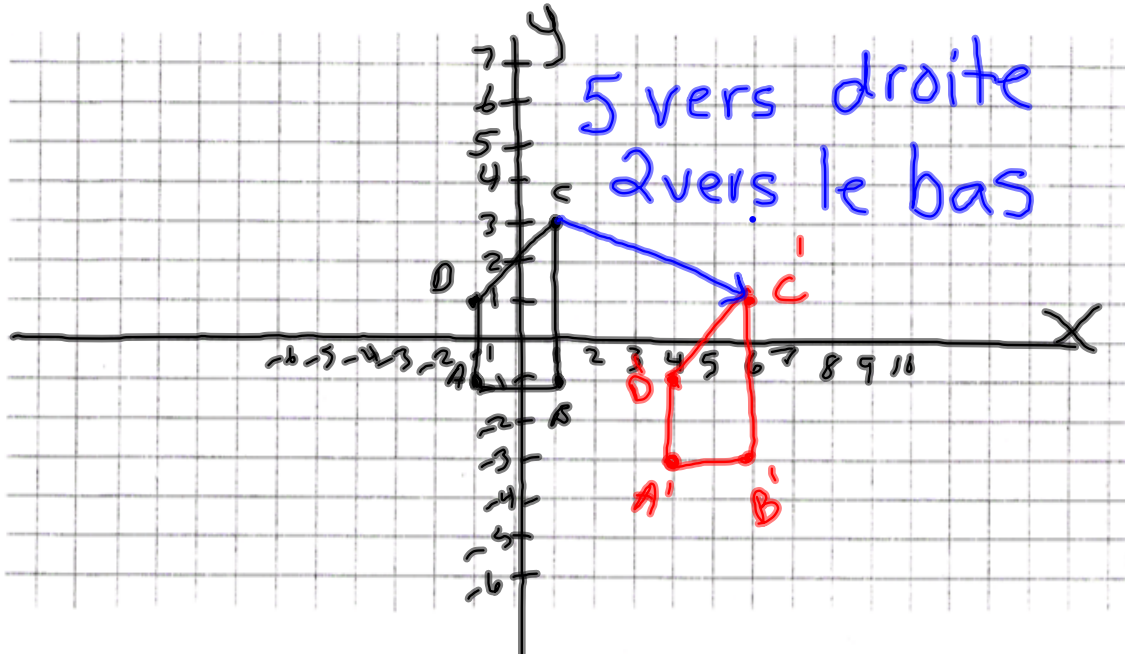 y
7
6
5
4
3
2
1
5 vers droite
2 vers le bas
C
D
C'
X
-6 -5 -4 -3 -2 -1 2 3 4 5 6 7 8 9 10
A
B
D'
-2
-3
-4
-5
-6
A'
B'